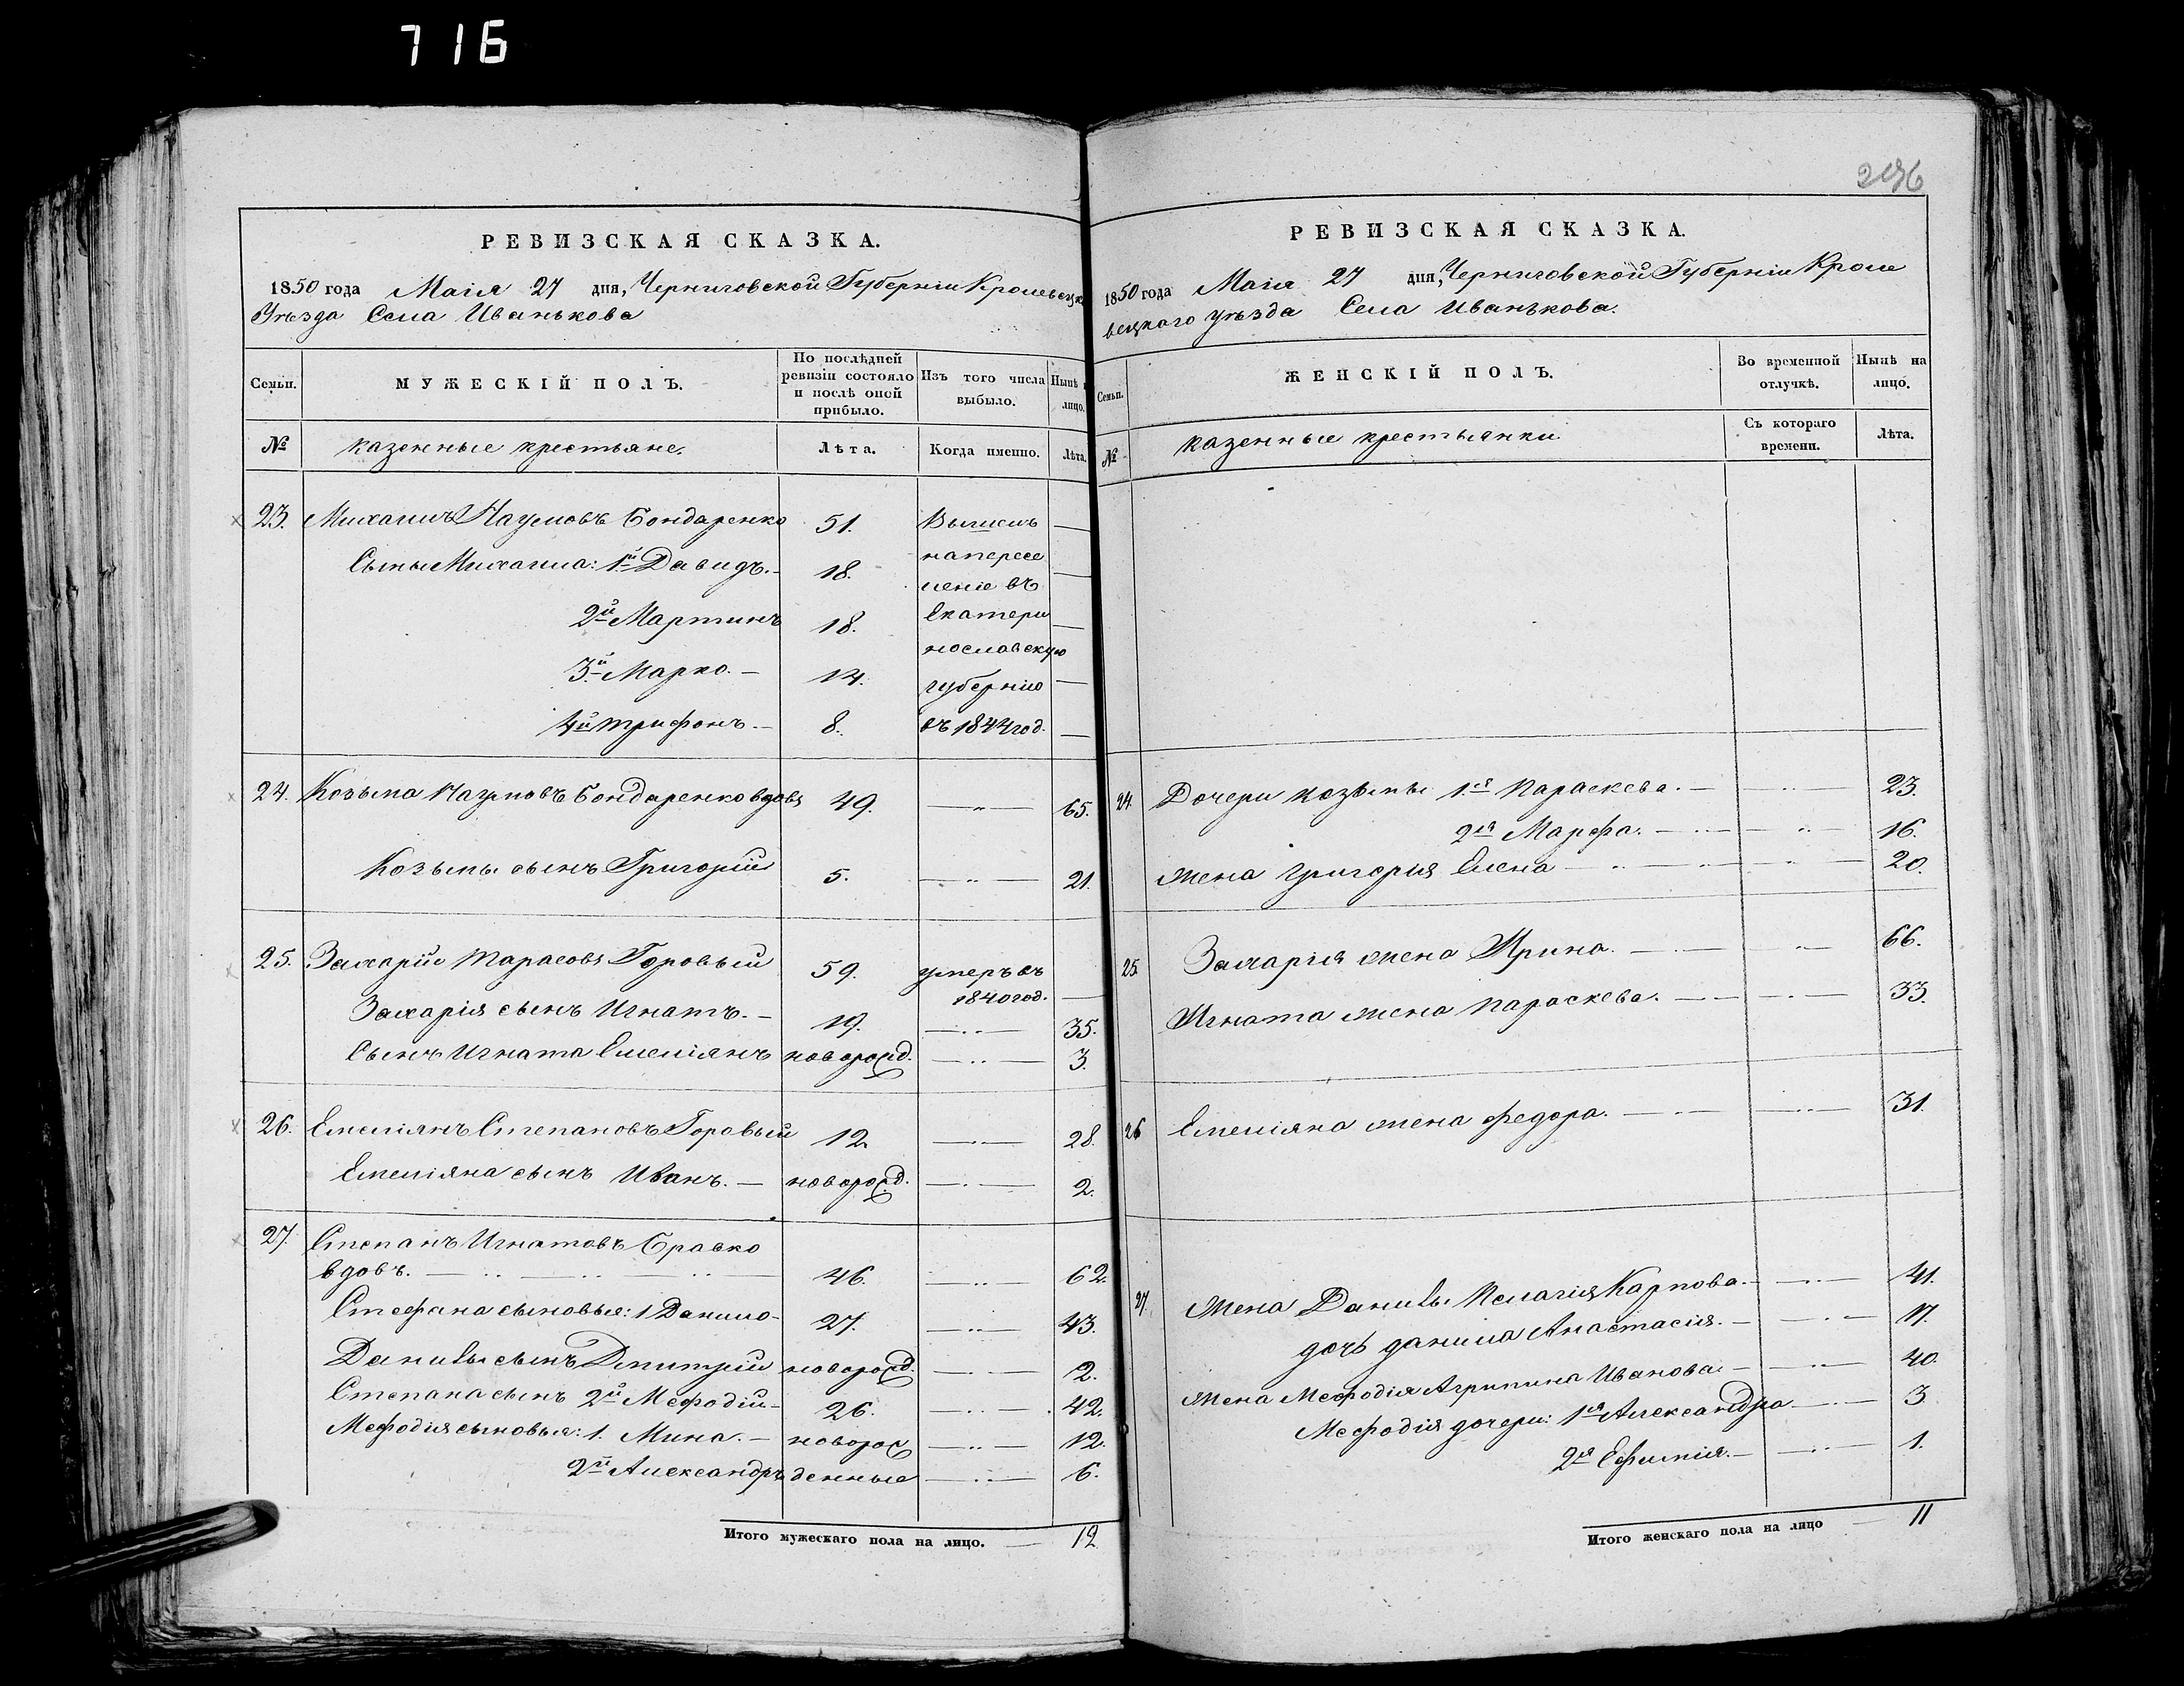 716
296
РЕВИЗСКАЯ СКАЗКА.
1850 года Маія 27 дня, Черниговской Губерніи Кролевецк
Уѣзда Села Иванькова
Семьи. МУЖЕСКІЙ ПОЛЪ. По послѣдней ревизіи состояло и послѣ оной прибыло. Изъ того числа выбыло. Нынѣ н лицо.
№ казенные крестьяне. Лѣта. Когда именно. Лѣта.
23. Михаилъ Наумовъ Бондаренко 51. Вышелъ —
на пересе
Сыны Михаила: 1й Давидъ. — 18. леніе въ —
2й Мартинъ 18. Екатери —
нославскую
3й Марко. — 14. губернію —
4й Трифонъ. — 8. въ 1844 год. —
24. Козьма Наумовъ Бондаренко вдовъ 49. — " — 65.
Козьмы сынъ Григорій 5. — " — 21.
25. Захарій Тарасовъ Горовый 59. умеръ въ
1840 год. —
Захарія сынъ Игнатъ. — 19. — " — 35.
Сынъ Игната Емеліянъ новорожд. — " — 3.
26. Емеліянъ Степановъ Горовый 12. — " — 28.
Емеліяна сынъ Иванъ. — новорожд. — " — 2.
27. Степанъ Игнатовъ Бравко
вдовъ. — " — " — " — 46. — " — 62.
Стефана сыновья: 1 Данило — 27. — " — 43.
Данилы сынъ Дмитрій новорожд. — " — 2.
Степана сынъ 2й Мефодій — 26. — " — 42.
Мефодія сыновья: 1. Мина. — новорож — " — 12.
2й Александръ денные — " — 6.
Итого мужескаго пола на лицо. — 12
РЕВИЗСКАЯ СКАЗКА.
1850 года Маія 27 дня, Черниговской Губерніи Кроле
вецкаго уѣзда Села Иванькова.
Семьи. ЖЕНСКІЙ ПОЛЪ. Во временной отлучкѣ. Нынѣ на лицо.
№ казенные крестьянки Съ котораго времени. Лѣта.
24. Дочери Козьмы 1я Параскева. — — " — 23.
2я Марфа. — " — — " — 16.
жена Григорія Елена — " — " — " — 20.
25. Захарія жена Ирина. — " — — " — 66.
Игната жена Параскева. — " — — " — 33.
26 Емеліяна жена Федора. — " — — " — 31.
27. Жена Данилы Пелагія Карпова. — — " — 41.
дочь Данила Анастасія. — — " — 17.
Жена Мефодія Агрипина Иванова. — — " — 40.
Мефодія дочери: 1я Александра — " — 3
2я Ефимія. — — " — 1.
Итого женскаго пола на лицо — 11